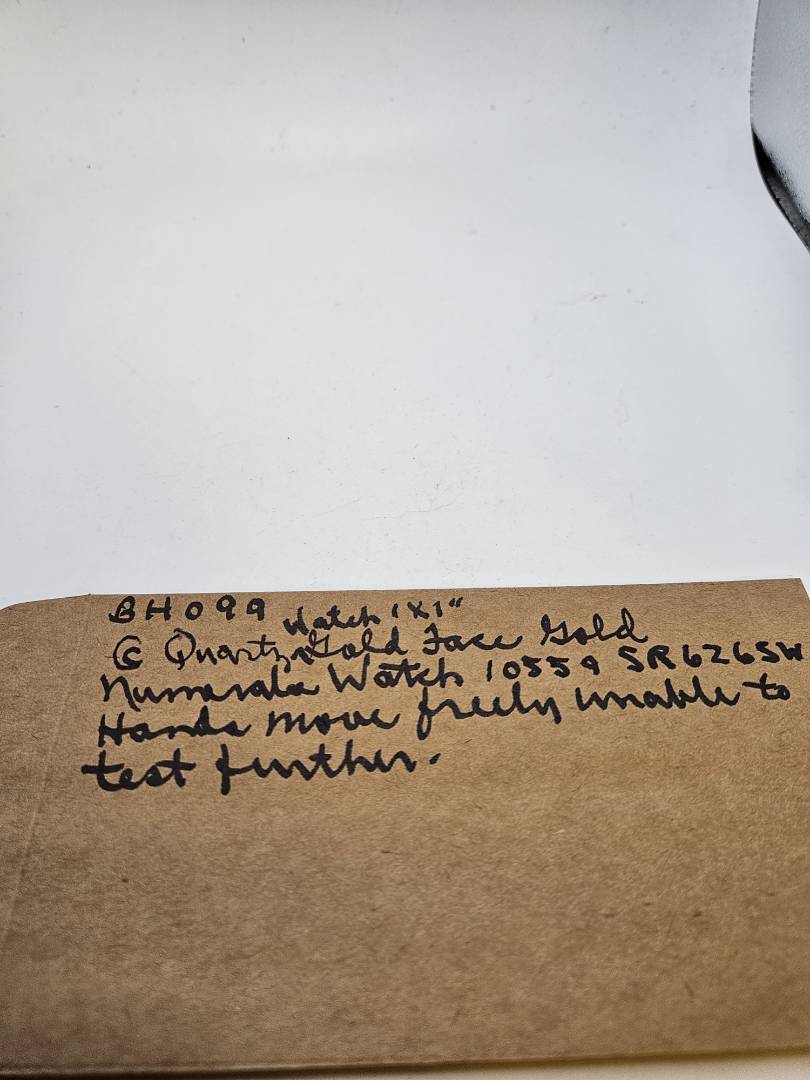 BH099 Watch 1x1"
G Quartz Gold Face Gold
Numerals Watch 10559 SR626SW
Hands move freely unable to
test further.